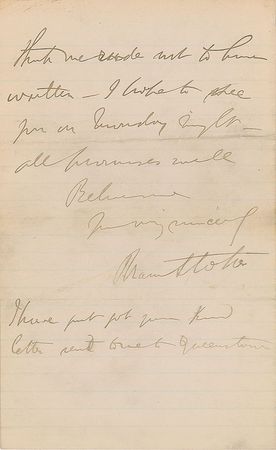 think me rude not to have
written – I hope to see
you on Monday night –
all promises well
Believe me
yours very sincerely
Bram Stoker
I have just got your kind
letter sent to Queenstown